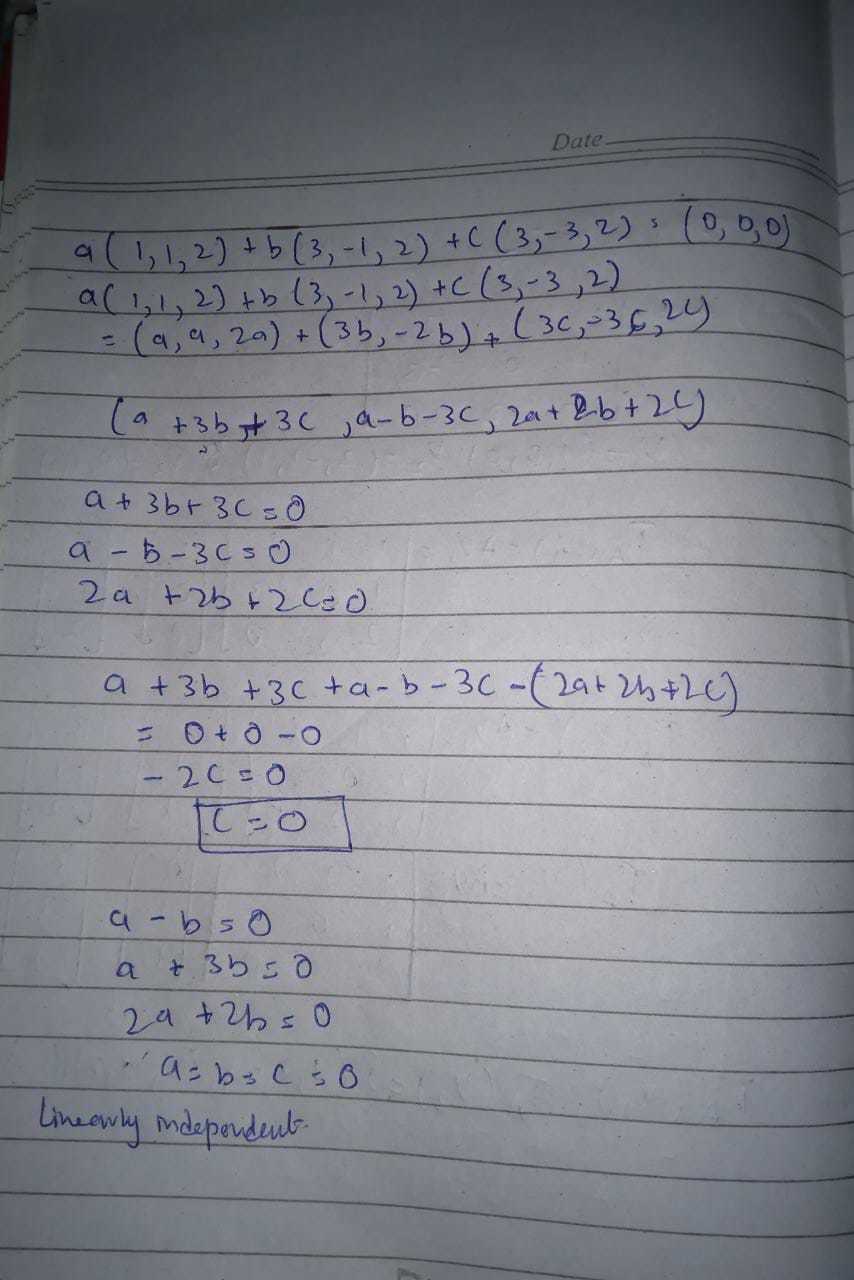 Date
a(1,1,2) + b(3,-1,2) + c(3,-3,2) = (0,0,0)
a(1,1,2) + b(3,-1,2) + c(3,-3,2)
= (a,a,2a) + (3b,-2b) + (3c,-3c,2c)
(a + 3b + 3c, a-b-3c, 2a+2b+2c)
a + 3b + 3c = 0
a - b - 3c = 0
2a + 2b + 2c = 0
a + 3b + 3c + a - b - 3c - (2a + 2b + 2c)
= 0 + 0 - 0
- 2c = 0
c = 0
a - b = 0
a + 3b = 0
2a + 2b = 0
a = b = c = 0
Linearly independent.